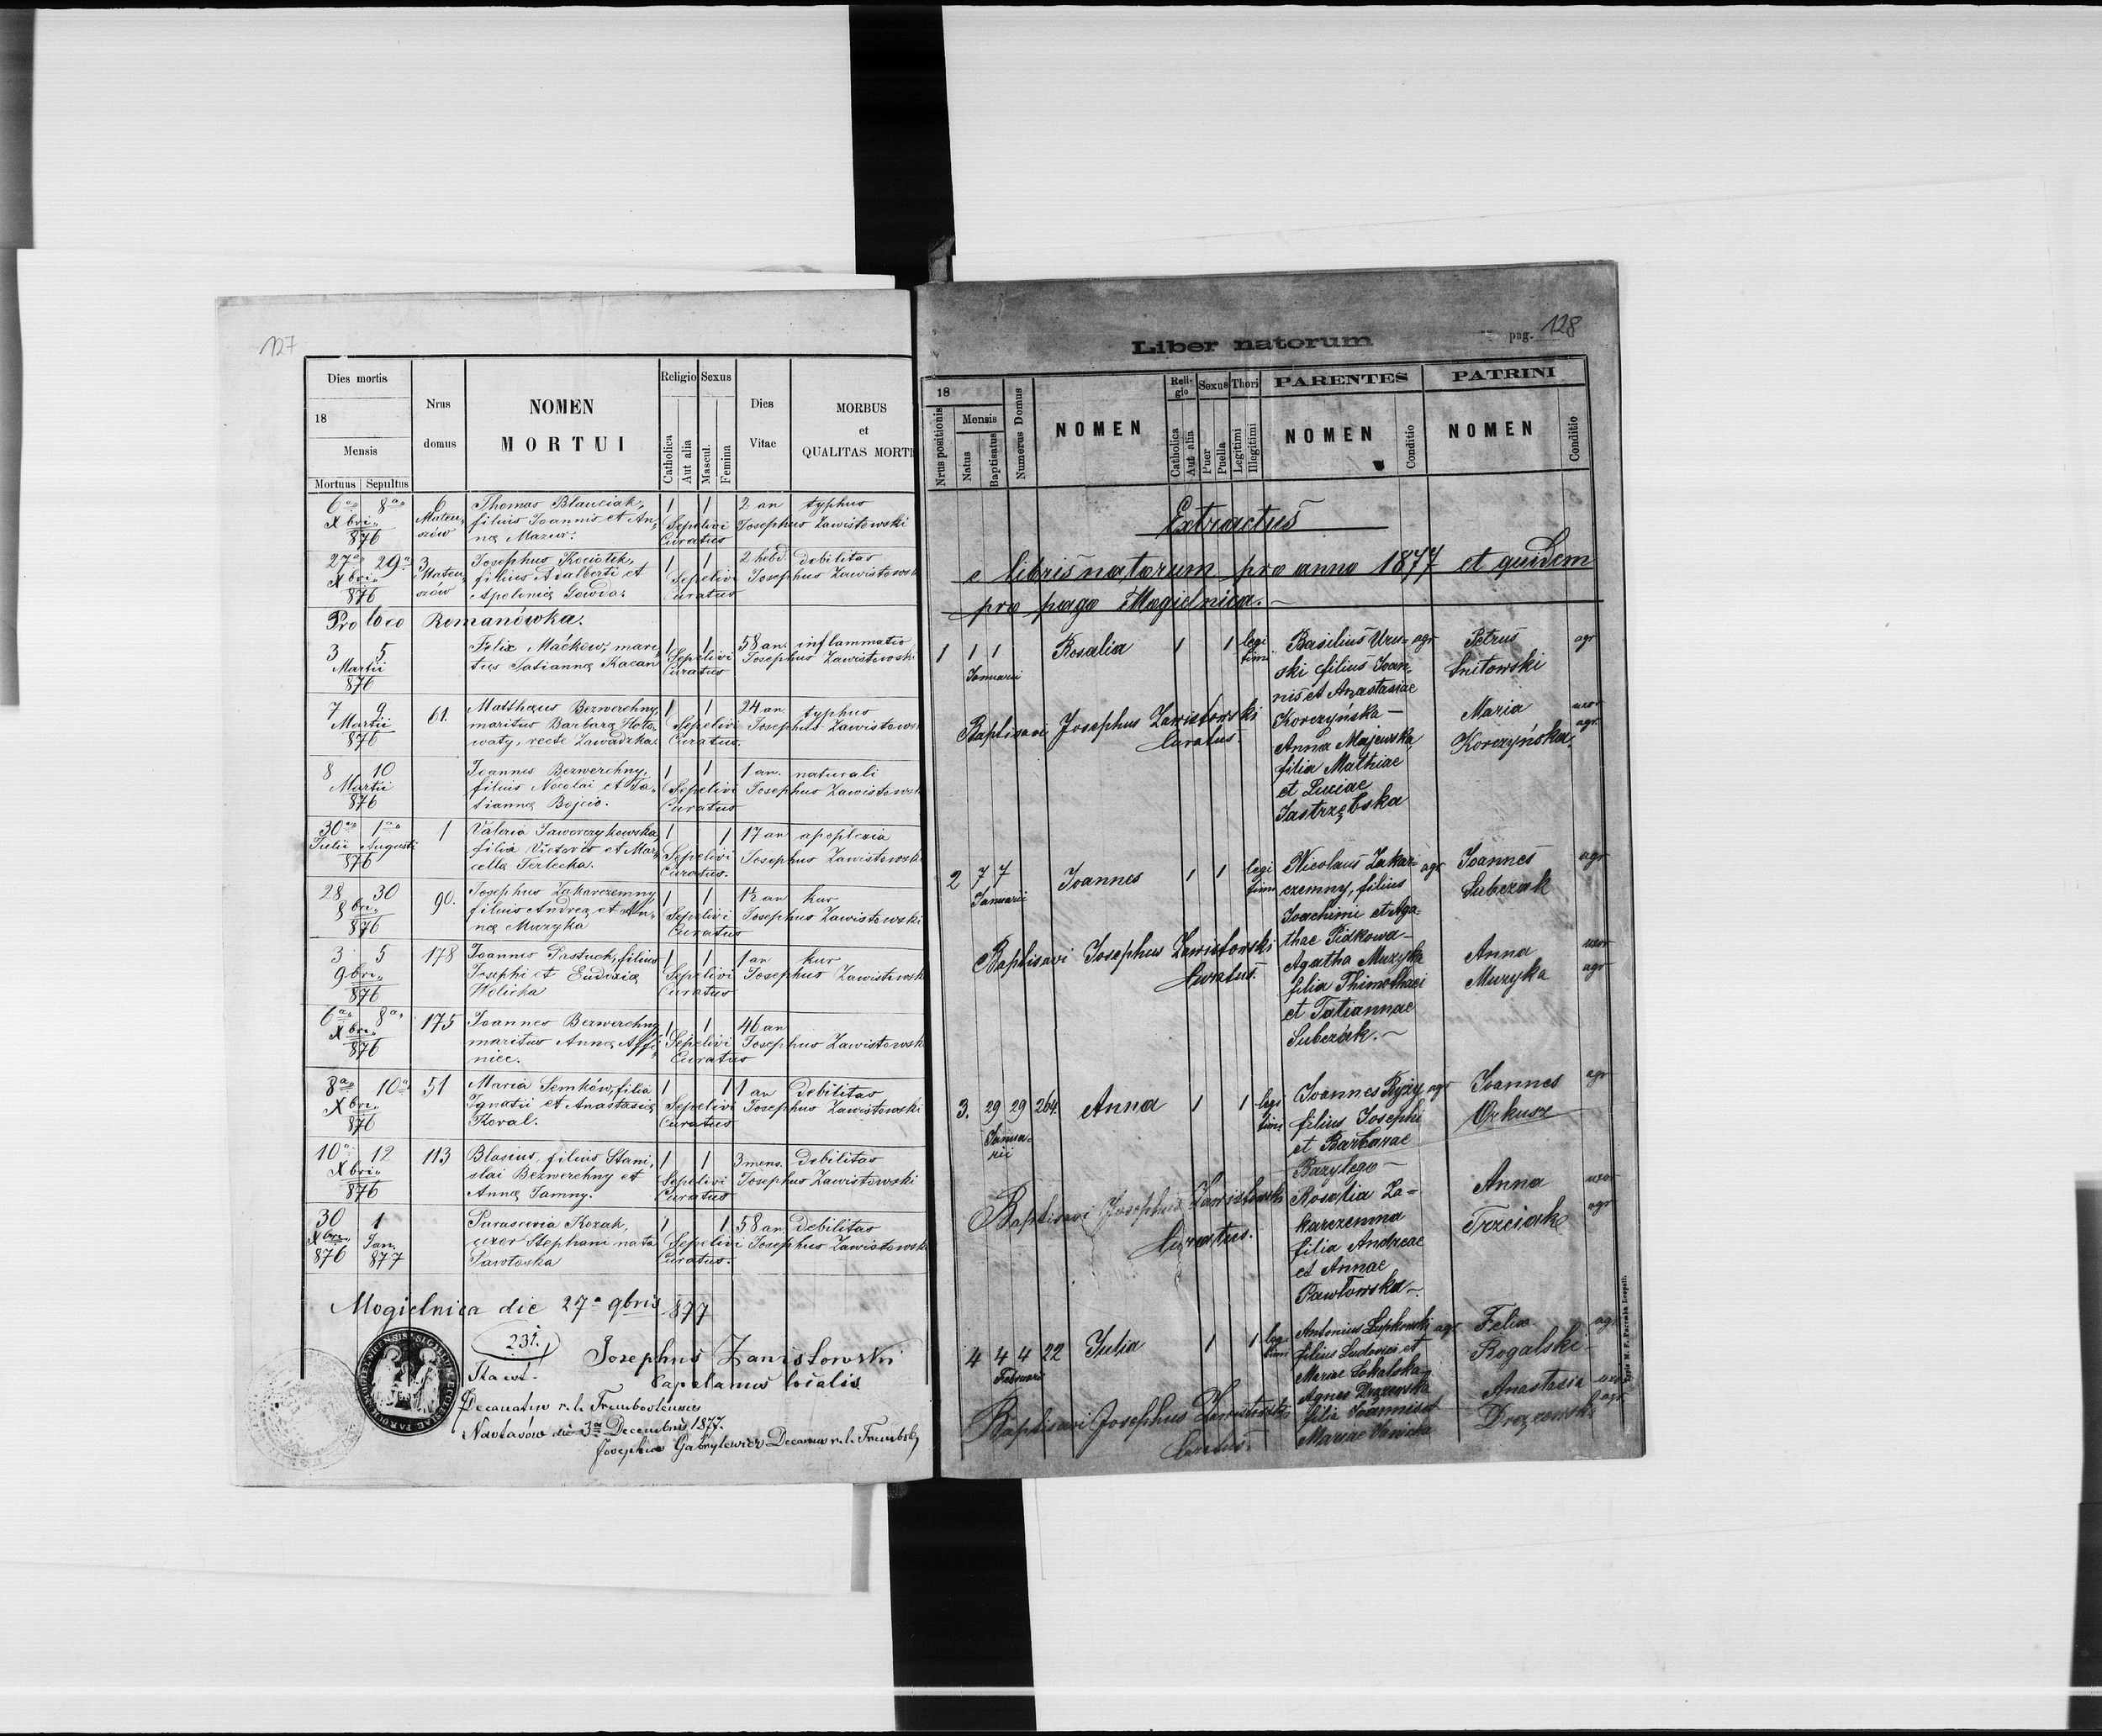 127
Dies mortis
18
Mensis
Mortuus Sepultus
Nrus domus
NOMEN
MORTUI
Religio Sexus
Catholica
Aut alia
Mascul.
Femina
Dies
Vitae
MORBUS
et
QUALITAS MORTI
6a 8a 6 Thomas Blauciak, 1 1 2 an typhus
Xbri Mateu filius Joannis et An Sepelivi Josephus Zawistowski
876 szów na Mazur. Curatus
27a 29a 3 Josephus Kociołek, 1 1 2 hebd debilitas
Xbri Mateu filius Adalberti et Sepelivi Josephus Zawistowsk
876 szów Apolonia Curatus
Pro loco Romanówka.
3 5 Felix Maćków, mari 1 1 58 an inflammatio
Martii tus Tatianna Kacan Sepelivi Josephus Zawistowski
876 Curatus
7 9 61. Matthaus Bezwerchny, 1 1 24 an typhus
Martii maritus Barbara Sepelivi Josephus Zawistows
876 waty, recte Zawadzka. Curatus.
8 10 Joannes Bezwerchny, 1 1 1 an. naturali
Martii filius Nicolai et Ta Sepelivi Josephus Zawistowsk
876 tianna Bojcio. Curatus
30a 1a 1 Valeria Jaworczykowska 1 1 17 an apoplexia
Julii Augusti filia Victoris et Mar Sepelivi Josephus Zawistowsk
876 cella Terlecka. Curatus.
28 30 90. Josephus Zakarczemny 1 1 an kur
8bri filius Andrea et An Sepelivi Josephus Zawistowski
876 na Muzyka Curatus
3 5 178 Joannes Pastuch, filius 1 1 1 an kur
9bri Josephi et Eudoxia Sepelivi Josephus Zawistowsk
876 Welicka Curatus
6a 8a 175 Joannes Bezwerchny 1 1 46 an
Xbri maritus Anna Sepelivi Josephus Zawistowsk
876 niec. Curatus
8a 10a 51 Maria Semków, filia 1 1 1 an Debilitas
Xbri Ignatii et Anastasia Sepelivi Josephus Zawistowski
876 Koval. Curatus
10 12 113 Blasius, filius Stani 1 1 3 mens. Debilitas
Xbri slai Bezwerchny et Sepelivi Josephus Zawistowski
876 Anna Tamny. Curatus
30 1 Parascevia Kozak, 1 1 58 an debilitas
Xbri Jan uxor Stephani nata Sepelivi Josephus Zawistowsk
876 877 Pawłoska Curatus.
Mogielnica die 27a 9bris 877
231.
Josephus Zawistowski
Capellanus localis
Decanatus r. l. Trembovlensis
die 3a Decembris 1877.
Josephus Gabrylewicz Decanus r. l. Trembov
Liber natorum
pag. 128
18
Nrus positionis
Mensis
Natus
Baptisatus
Numerus Domus
NOMEN
Reli-
gio
Sexus
Thori
Catholica
Aut alia
Puer
Puella
Legitimi
Illegitimi
PARENTES
NOMEN
Conditio
PATRINI
NOMEN
Conditio
Extractus
e libris natorum pro anno 1877 et quidem
pro pago Mogielnica.
1 1 1 Rosalia 1 1 legi Basilius Uru- agr Petrus agr
Januarii timi ski filius Joan- Snitowski
nis et Anastasiae
Baptisavi Josephus Zawistowski Korczyńska- Maria uxor
Curatus. Anna Majewska Korczyńska. agr.
filia Mathiae
et Luciae
Jastrzębska
2 7 7 Joannes 1 1 legi Nicolaus Zakar- agr Joannes agr
Januarii timi czemny, filius Subczak
Joachimi et Aga-
thae Pidkowa-
Baptisavi Josephus Zawistowski Agatha Muzyka Anna uxor
Curatus. filia Thimothaei Muzyka agr
et Tatiannae
Subczak.-
3. 29 29 264. Anna 1 1 legi Joannes Ryży agr Joannes agr
Janua- timi filius Josephi Orkusz
rii et Barbarae
Bazylego-
Baptisavi Josephus Zawistowski Rosalia Za- Anna uxor
Curatus. karczemna Trzeciak agr
filia Andreae
et Annae
Pawłowska-
4 4 4 22 Julia 1 1 legi Antonius Łupkowski agr Felix agr
Februarii timi filius Ludovici et Rogalski-
Mariae Sokalska-
Agnes Drozewska Anastasia uxor
Baptisavi Josephus Zawistowski filia Joannis et Drozewska agr
Curatus. Mariae